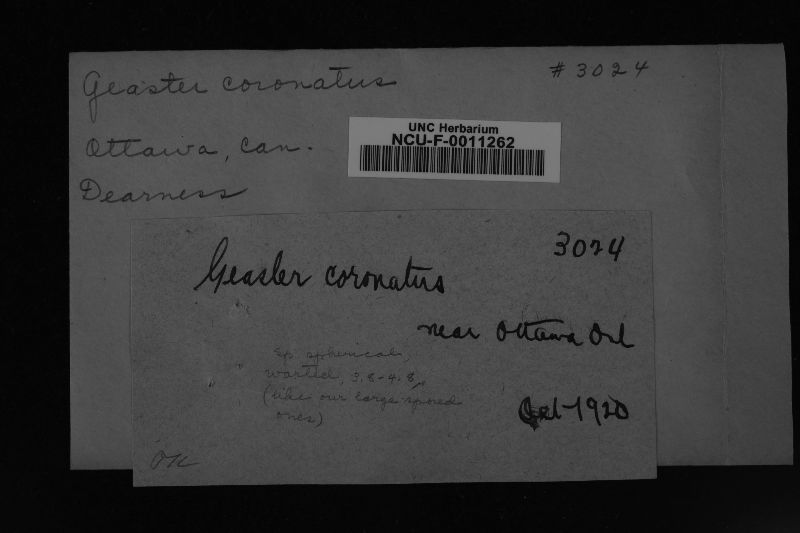 Geaster coronatus
# 3024
Ottawa, Can.
Dearness
UNC Herbarium
NCU-F-0011262
3024
Geaster coronatus
near Ottawa Ont
Sp. spherical,
warted, 3.8-4.8
(like our large spored
ones)
Oct 1920
OK